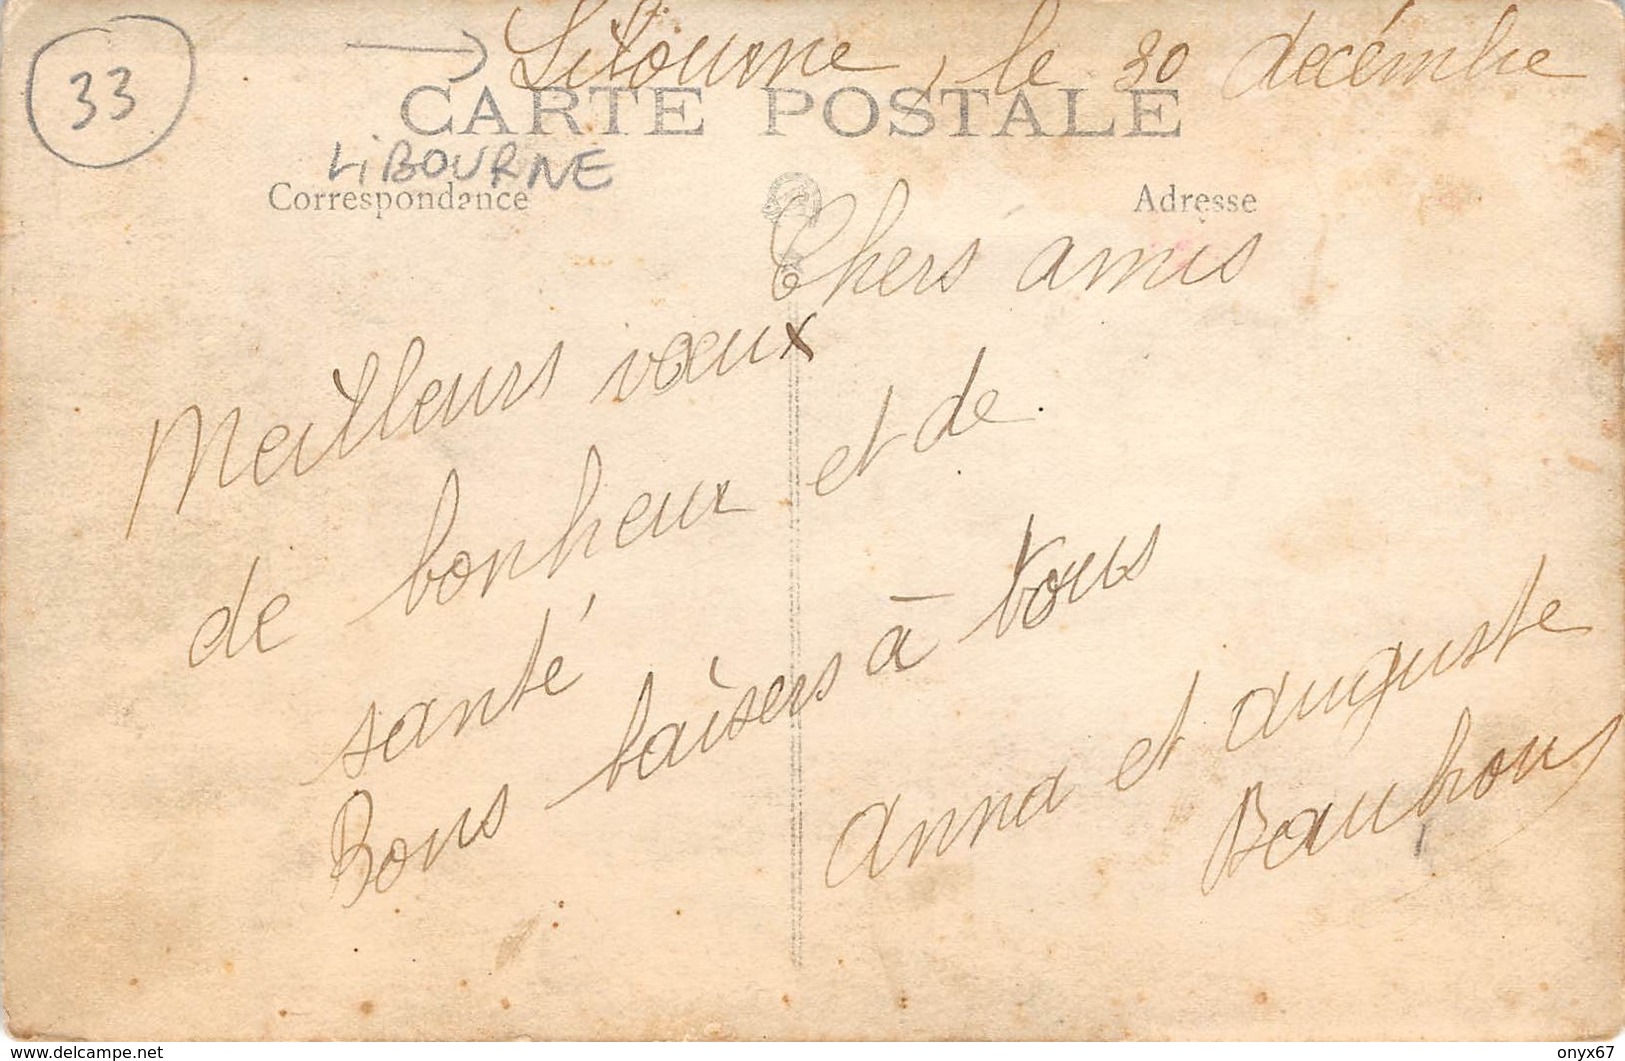 Libourne, le 30 decémbre
33
CARTE POSTALE
LiBOURNE
Correspondance
Adresse
Chers amis
Meilleurs vœux
de bonheur et de
santé
Bons baisers à tous
Anna et auguste
www.delcampe.net
onyx67